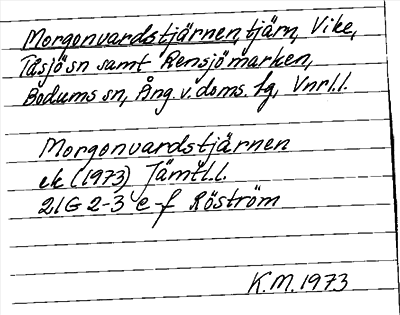 Morgonvardstjärnen, tjärn, Vike,
Tåsjö sn samt Rensjömarken,
Bodums sn, Ång. v. doms. fg, Vnrl.l.
Morgonvardstjärnen
ek (1973) Jämtl.l.
21G 2-3 e-f Röström
K.M. 1973